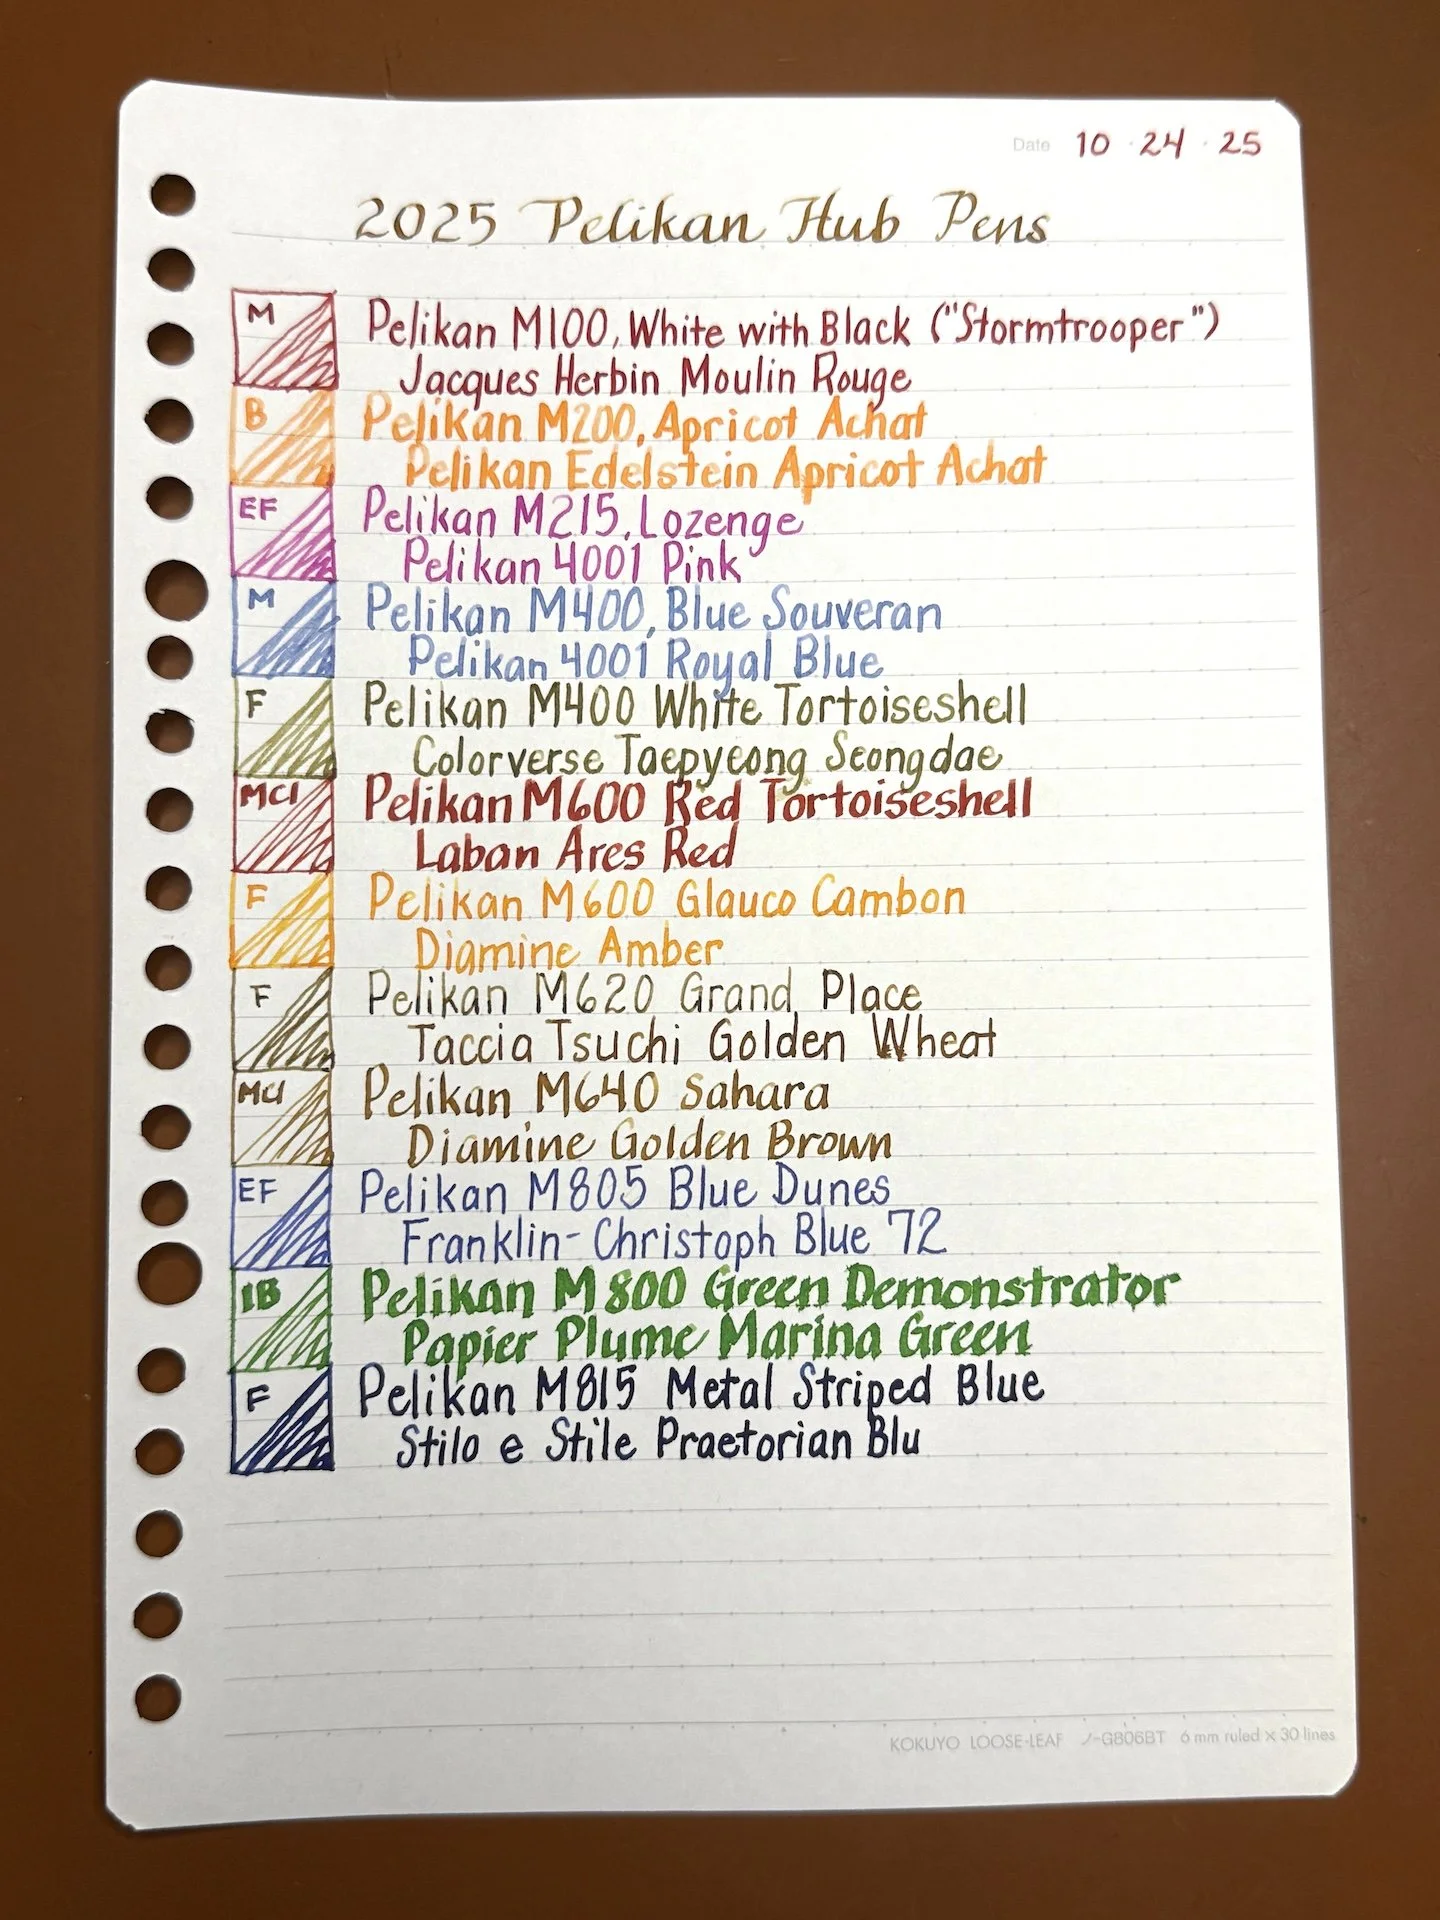 Date 10 · 24 · 25
2025 Pelikan Hub Pens
M
Pelikan M100, White with Black ("Stormtrooper")
Jacques Herbin Moulin Rouge
B
Pelikan M200, Apricot Achat
Pelikan Edelstein Apricot Achat
EF
Pelikan M215, Lozenge
Pelikan 4001 Pink
M
Pelikan M400, Blue Souveran
Pelikan 4001 Royal Blue
F
Pelikan M400 White Tortoiseshell
Colorverse Taepyeong Seongdae
MCI
Pelikan M600 Red Tortoiseshell
Laban Ares Red
F
Pelikan M600 Glauco Cambon
Diamine Amber
F
Pelikan M620 Grand Place
Taccia Tsuchi Golden Wheat
MCI
Pelikan M640 Sahara
Diamine Golden Brown
EF
Pelikan M805 Blue Dunes
Franklin-Christoph Blue 72
IB
Pelikan M800 Green Demonstrator
Papier Plume Marina Green
F
Pelikan M815 Metal Striped Blue
Stilo e Stile Praetorian Blu
KOKUYO LOOSE-LEAF ノ-G806BT 6 mm ruled × 30 lines